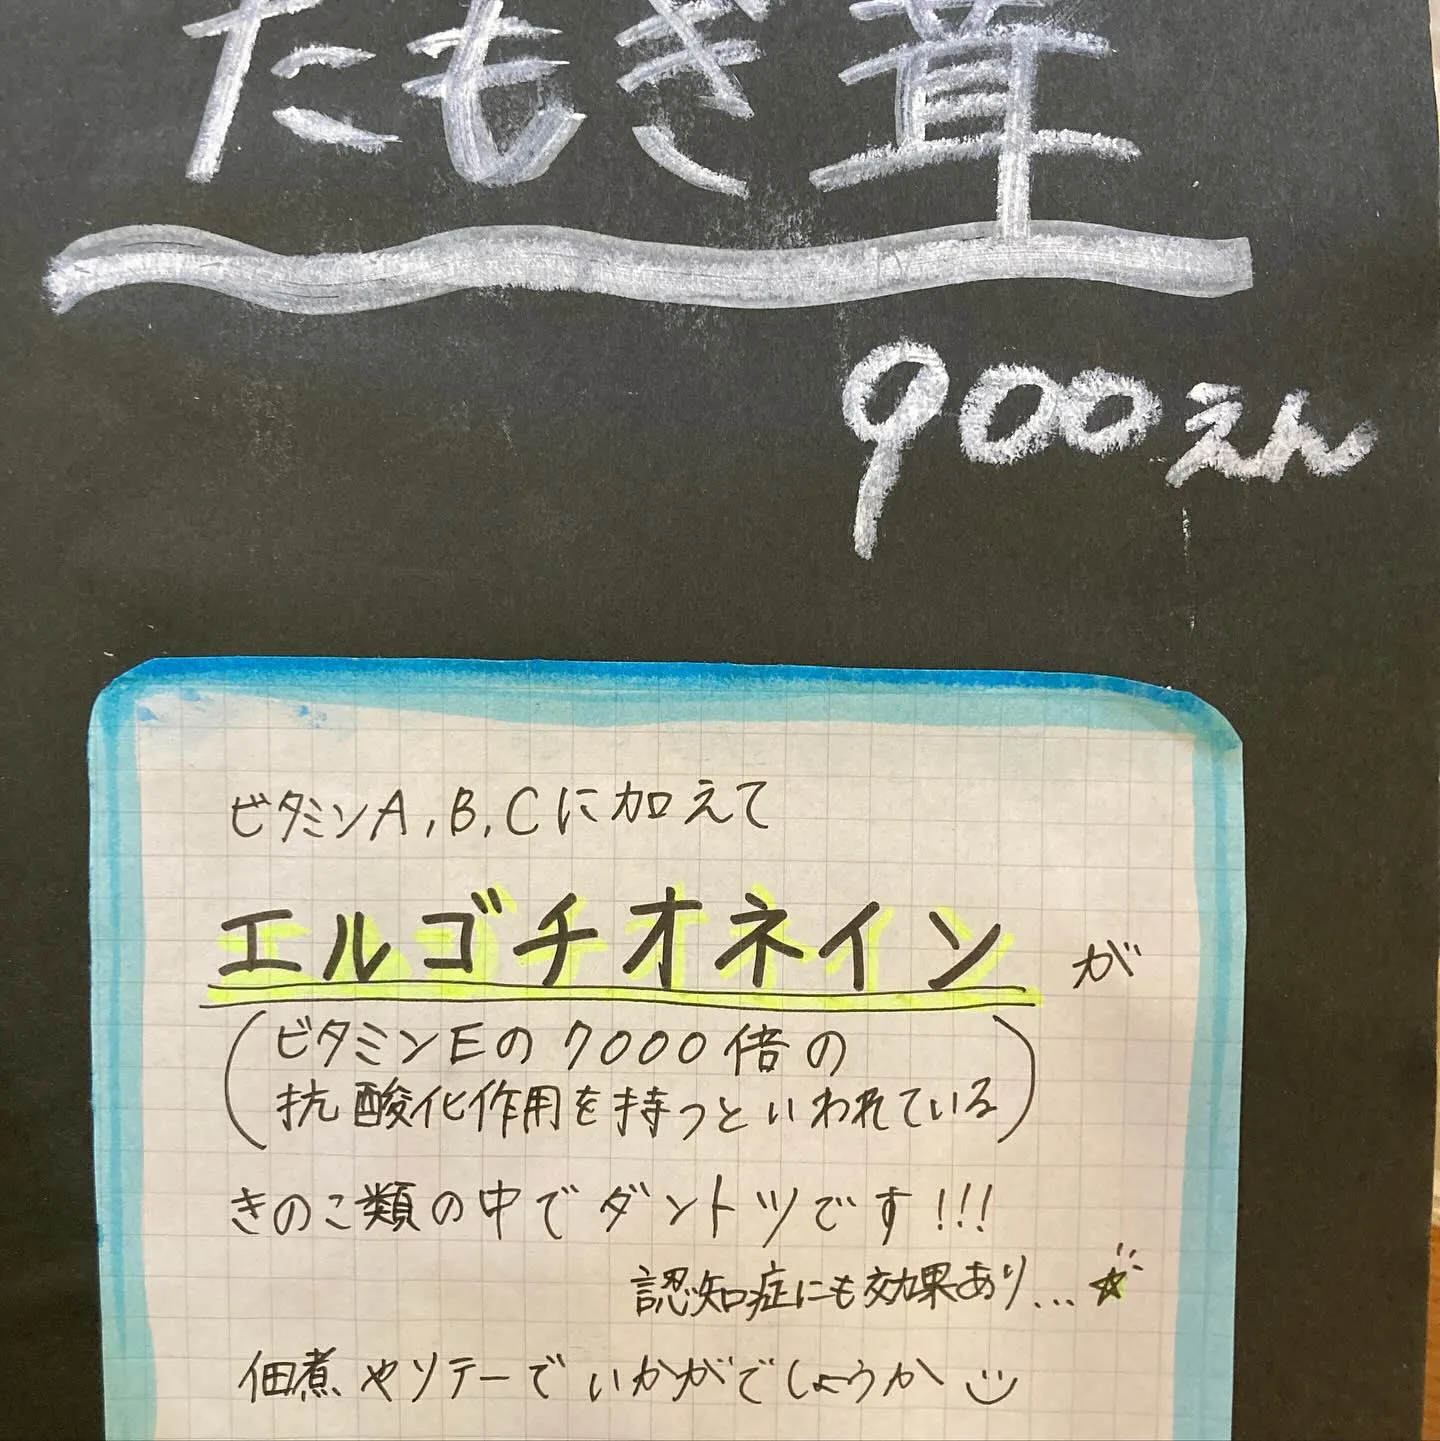 たもぎ茸
900えん
ビタミンA,B,Cに加えて
エルゴチオネインが
(ビタミンEの7000倍の
抗酸化作用を持つといわれている)
きのこ類の中でダントツです!!!
認知症にも効果あり...☆
佃煮やソテーでいかがでしょうか